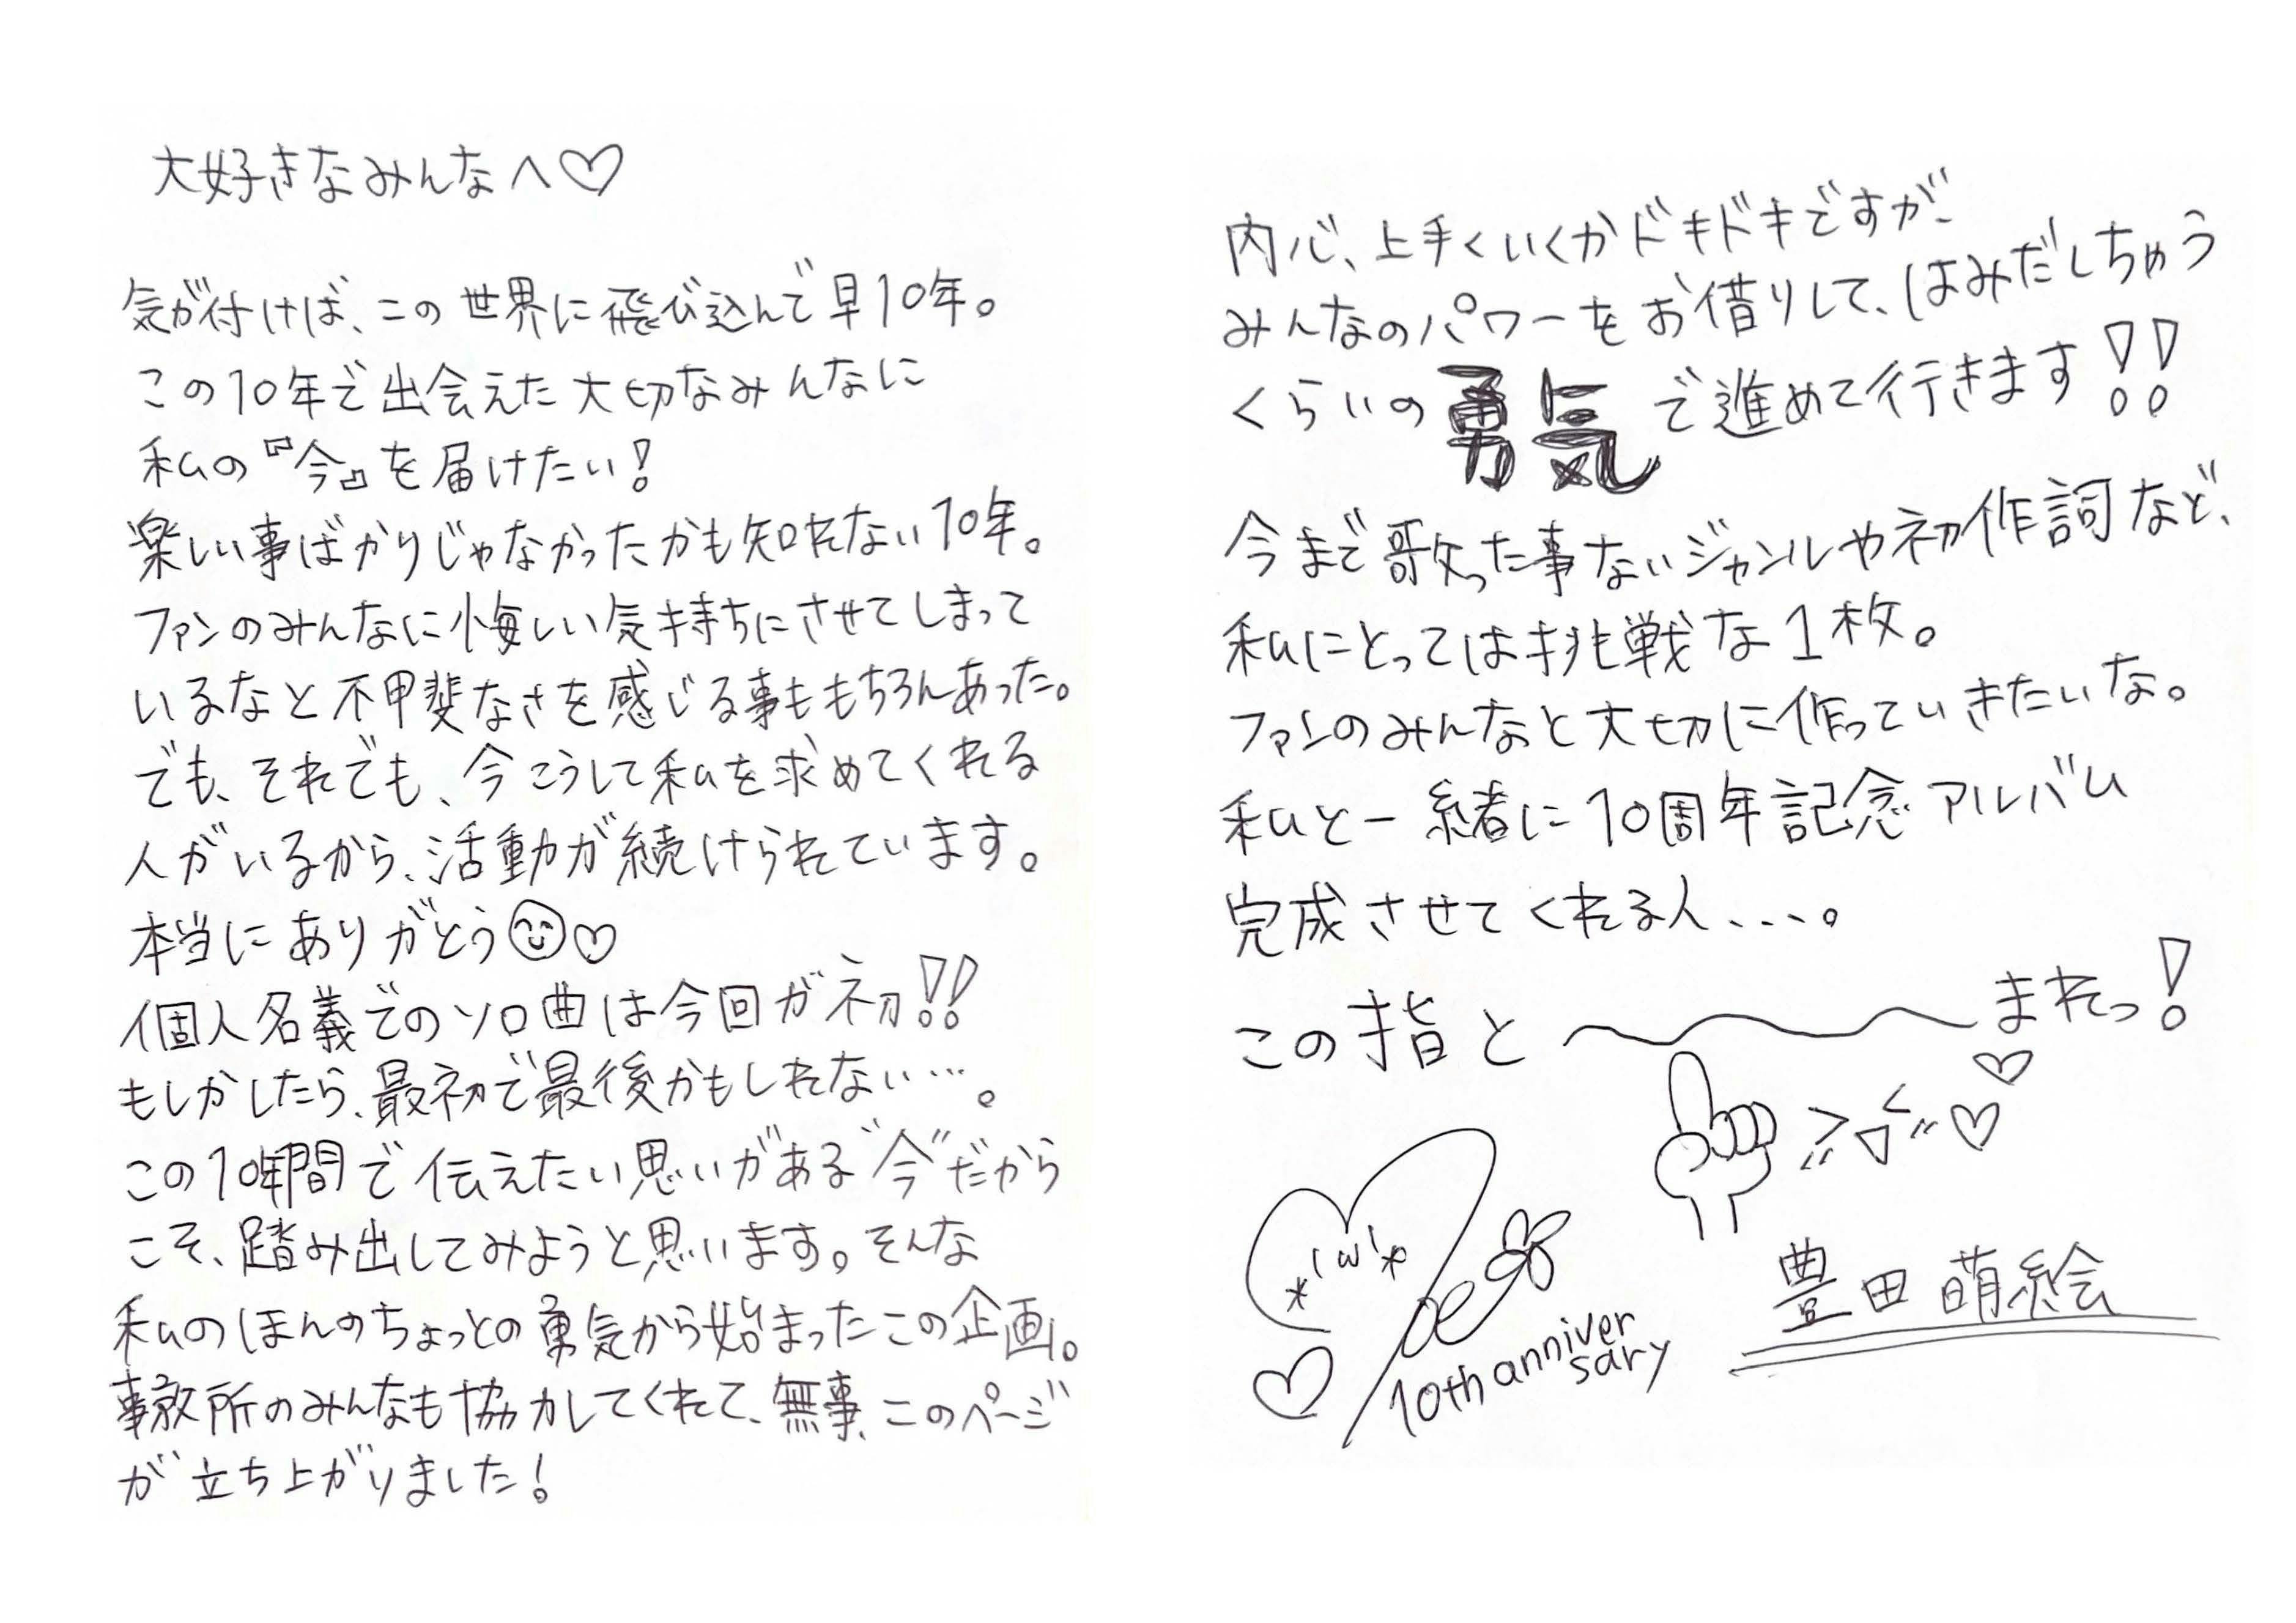 大好きなみんなへ♡
気が付けば、この世界に飛び込んで早10年。
この10年で出会えた大切なみんなに
私の『今』を届けたい!
楽しい事ばかりじゃなかったかも知れない10年。
ファンのみんなに悔しい気持ちにさせてしまって
いるなと不甲斐なさを感じる事ももちろんあった。
でも、それでも、今こうして私を求めてくれる
人がいるから、活動が続けられています。
本当にありがとう♡
個人名義でのソロ曲は今回が初!!
もしかしたら、最初で最後かもしれない…。
この10年間で伝えたい思いがある“今”だから
こそ、踏み出してみようと思います。そんな
私のほんのちょっとの勇気から始まったこの企画。
事務所のみんなも協力してくれて、無事、このページ
が立ち上がりました!
内心、上手くいくかドキドキですが、
みんなのパワーをお借りして、はみだしちゃう
くらいの勇気で進めて行きます!!
今まで歌った事ないジャンルや初作詞など、
私にとっては挑戦な1枚。
ファンのみんなと大切に作っていきたいな。
私と一緒に10周年記念アルバム
完成させてくれる人、、、。
この指と〜まれっ!
moe
10th anniver
sary
豊田萌絵